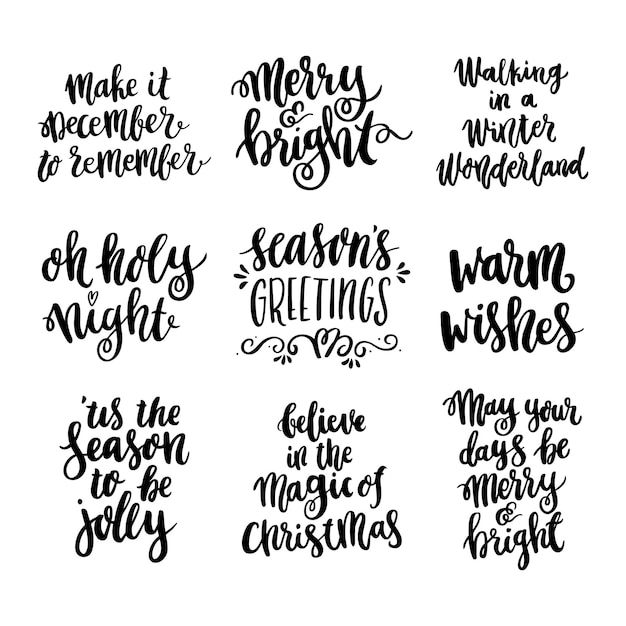 Make it
December
to remember
Merry
&
bright
Walking
in a
Winter
Wonderland
oh holy
night
Season's
GREETINGS
warm
wishes
'tis the
Season
to be
jolly
believe
in the
Magic of
Christmas
May your
days be
Merry
&
bright